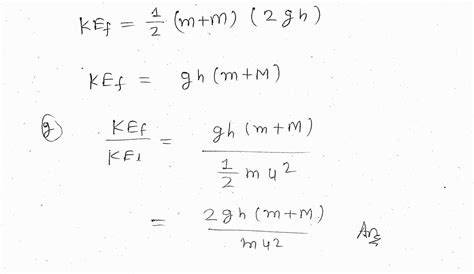 KEf = 1/2 (m+m) (2gh)
KEf = gh (m+M)
g) KEf/KEi = gh (m+M) / 1/2 m u^2
= 2gh (m+M) / m u^2 Ans